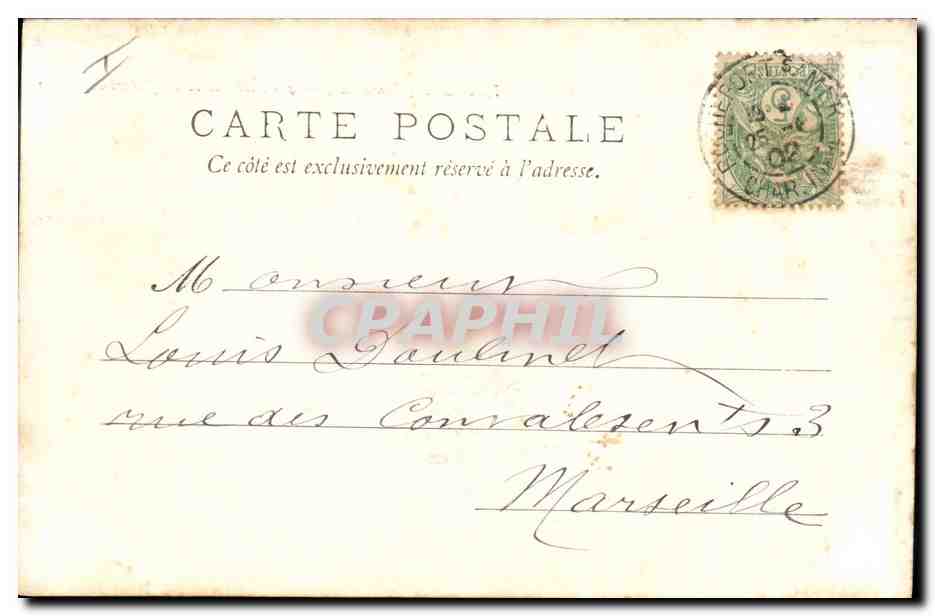 CARTE POSTALE
Ce côté est exclusivement réservé à l'adresse.
5
25
02
CHAR
Monsieur
CPAPHIL
Louis
rue des Convalesents 3
Marseille